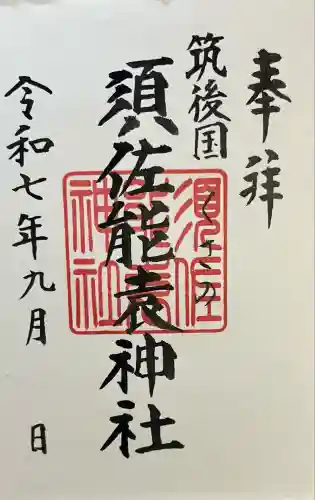 奉拝
筑後国
くさの
須佐能袁神社
須佐能袁神社
令和七年九月 日